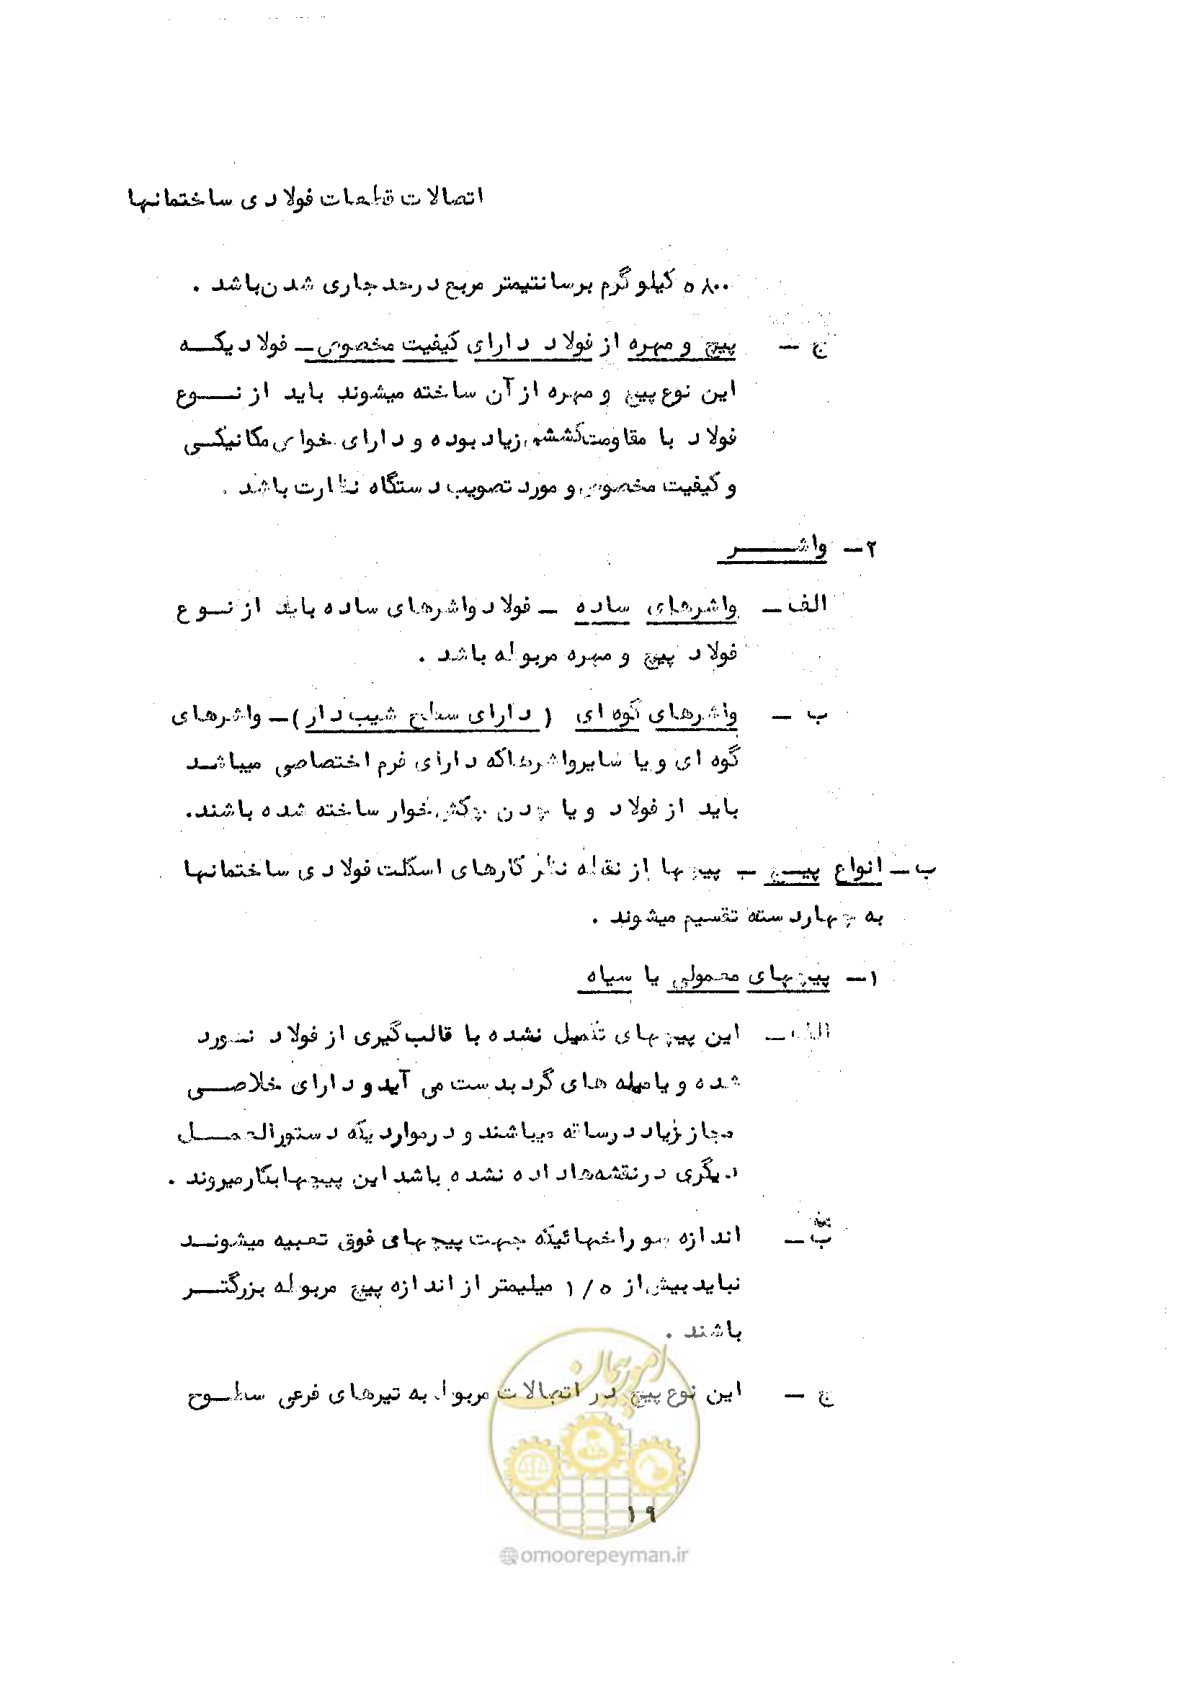 اتصالات قطعات فولادی ساختمانها
۵۸۰۰ کیلوگرم برسانتیمتر مربع درحد جاری شدن باشد .
ج – پیچ و مهره از فولاد دارای کیفیت مخصوص – فولادیکه
این نوع پیچ و مهره ازآن ساخته میشوند باید از نوع
فولاد با مقاومت کششی زیاد بوده و دارای خواص مکانیکی
و کیفیت مخصوص و مورد تصویب دستگاه نظارت باشد .
۲– واشر
الف – واشرهای ساده – فولاد واشرهای ساده باید از نوع
فولاد پیچ و مهره مربوطه باشد .
ب – واشرهای گوه ای (دارای سطح شیب دار) – واشرهای
گوه ای و یا سایر واشرهاکه دارای فرم اختصاصی میباشد
باید از فولاد و یا چدن چکش خوار ساخته شده باشند.
ب – انواع پیچ – پیچها از نقطه نظر کارهای اسکلت فولادی ساختمانها
به چهاردسته تقسیم میشوند .
۱– پیچهای معمولی یا سیاه
الف – این پیچهای تکمیل نشده با قالب گیری از فولاد نورد
شده و یامیله های گرد بدست می آید و دارای خلاصی
مجاز زیاد درساقه میباشند و درمواردیکه دستورالعمل
دیگری درنقشه‌ها داده نشده باشد این پیچها بکارمیروند .
ب – اندازه سوراخهائیکه جهت پیچهای فوق تعبیه میشوند
نباید بیش از ۱/۵ میلیمتر از اندازه پیچ مربوطه بزرگتر
باشند .
ج – این نوع پیچ در اتصالات مربوط به تیرهای فرعی سطوح
امور پیمان
۱۹
@omoorepeyman.ir